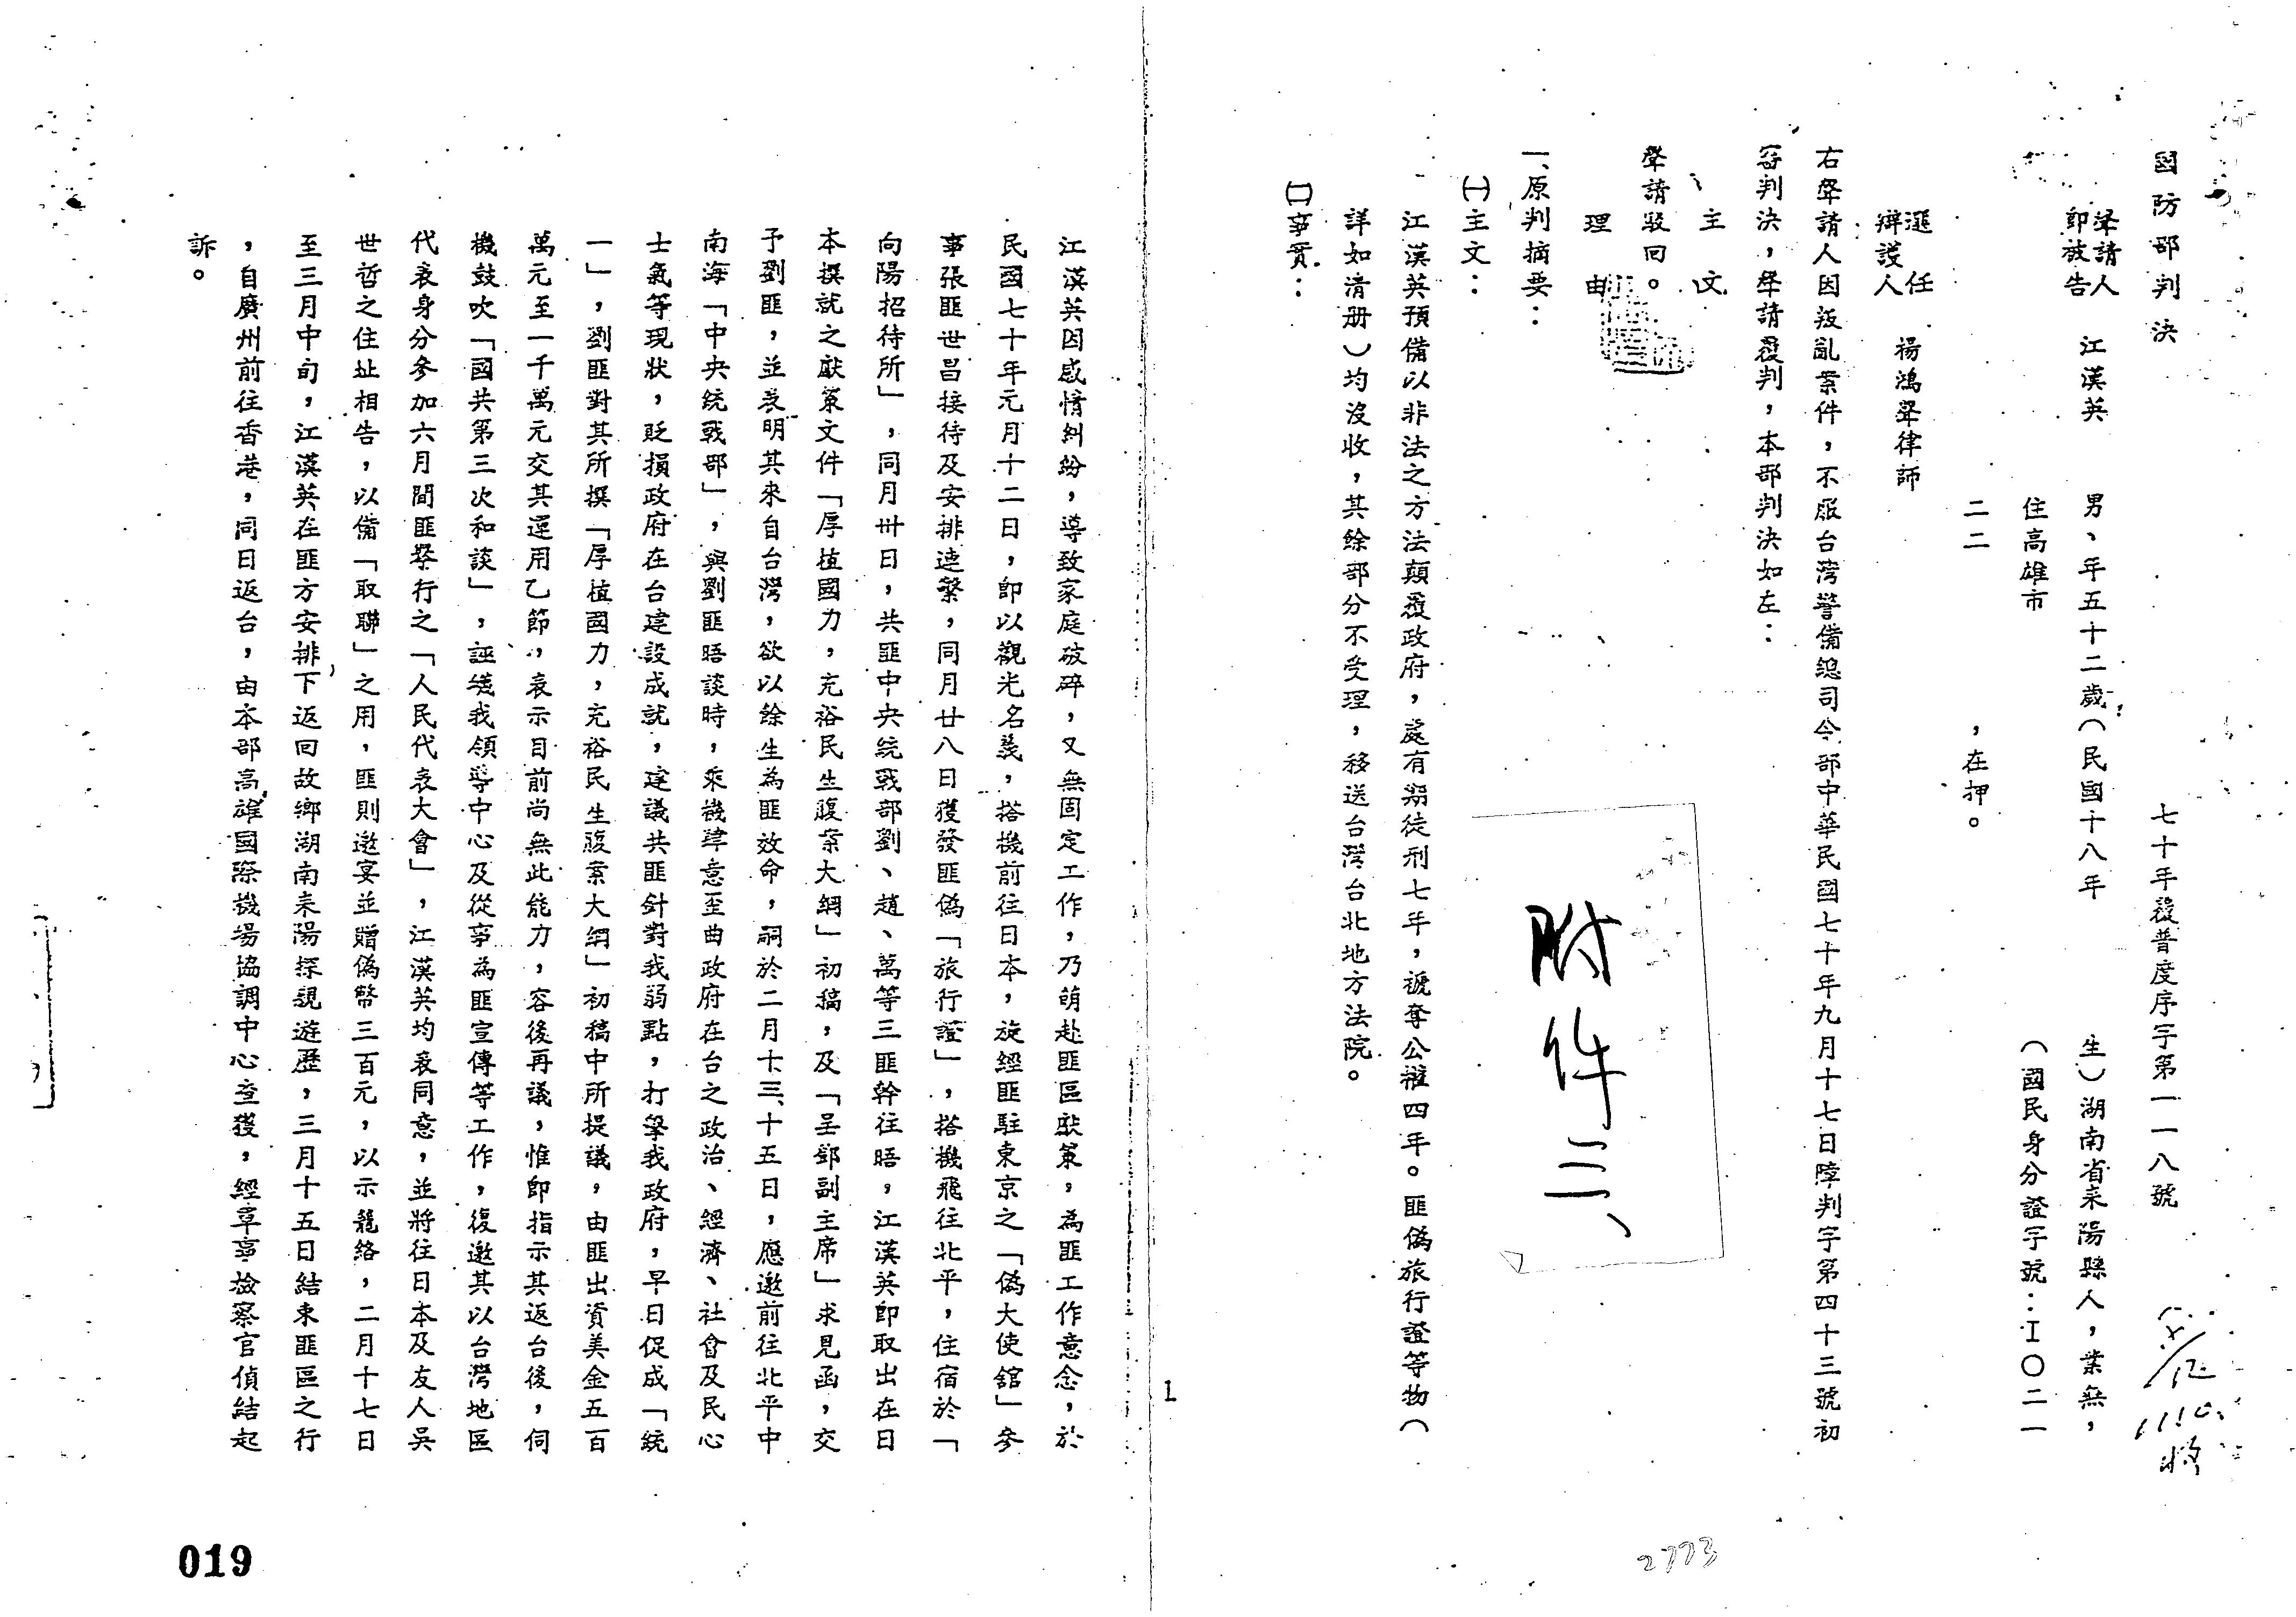 國防部判決
七十年覆普度序字第一一一八號
聲請人
即被告
江漢英
男、年五十二歲（民國十八年
生）湖南省耒陽縣人，業無，
住高雄市
（國民身分證字號：I〇二一
二二
，在押。
選任
辯護人
楊鴻聲律師
右聲請人因叛亂案件，不服台灣警備總司令部中華民國七十年九月十七日障判字第四十三號初
審判決，聲請覆判，本部判決如左：
主文
聲請駁回。
理由
一、原判摘要：
㈠主文：
江漢英預備以非法之方法顛覆政府，處有期徒刑七年，褫奪公權四年。匪偽旅行證等物（
詳如清册）均沒收，其餘部分不受理，移送台灣台北地方法院。
㈡事實：
附件三、
2773
1
江漢英因感情糾紛，導致家庭破碎，又無固定工作，乃萌赴匪區獻策，為匪工作意念，於
民國七十年元月十二日，即以觀光名義，搭機前往日本，旋經匪駐東京之「偽大使舘」參
事張匪世昌接待及安排連繫，同月廿八日獲發匪偽「旅行證」，搭機飛往北平，住宿於「
向陽招待所」，同月卅日，共匪中央統戰部劉、趙、萬等三匪幹往晤，江漢英即取出在日
本撰就之獻策文件「厚植國力，充裕民生腹案大綱」初稿，及「呈鄧副主席」求見函，交
予劉匪，並表明其來自台灣，欲以餘生為匪效命，嗣於二月十三、十五日，應邀前往北平中
南海「中央統戰部」，與劉匪晤談時，乘機肆意歪曲政府在台之政治、經濟、社會及民心
士氣等現狀，貶損政府在台建設成就，建議共匪針對我弱點，打擊我政府，早日促成「統
一」，劉匪對其所撰「厚植國力，充裕民生腹案大綱」初稿中所提議，由匪出資美金五百
萬元至一千萬元交其運用乙節，表示目前尚無此能力，容後再議，惟即指示其返台後，伺
機鼓吹「國共第三次和談」，誣衊我領導中心及從事為匪宣傳等工作，復邀其以台灣地區
代表身分參加六月間匪舉行之「人民代表大會」，江漢英均表同意，並將往日本及友人吳
世哲之住址相告，以備「取聯」之用，匪則邀宴並贈偽幣三百元，以示籠絡，二月十七日
至三月中旬，江漢英在匪方安排下返回故鄉湖南耒陽探親遊歷，三月十五日結束匪區之行
，自廣州前往香港，同日返台，由本部高雄國際機場協調中心查獲，經軍事檢察官偵結起
訴。
019